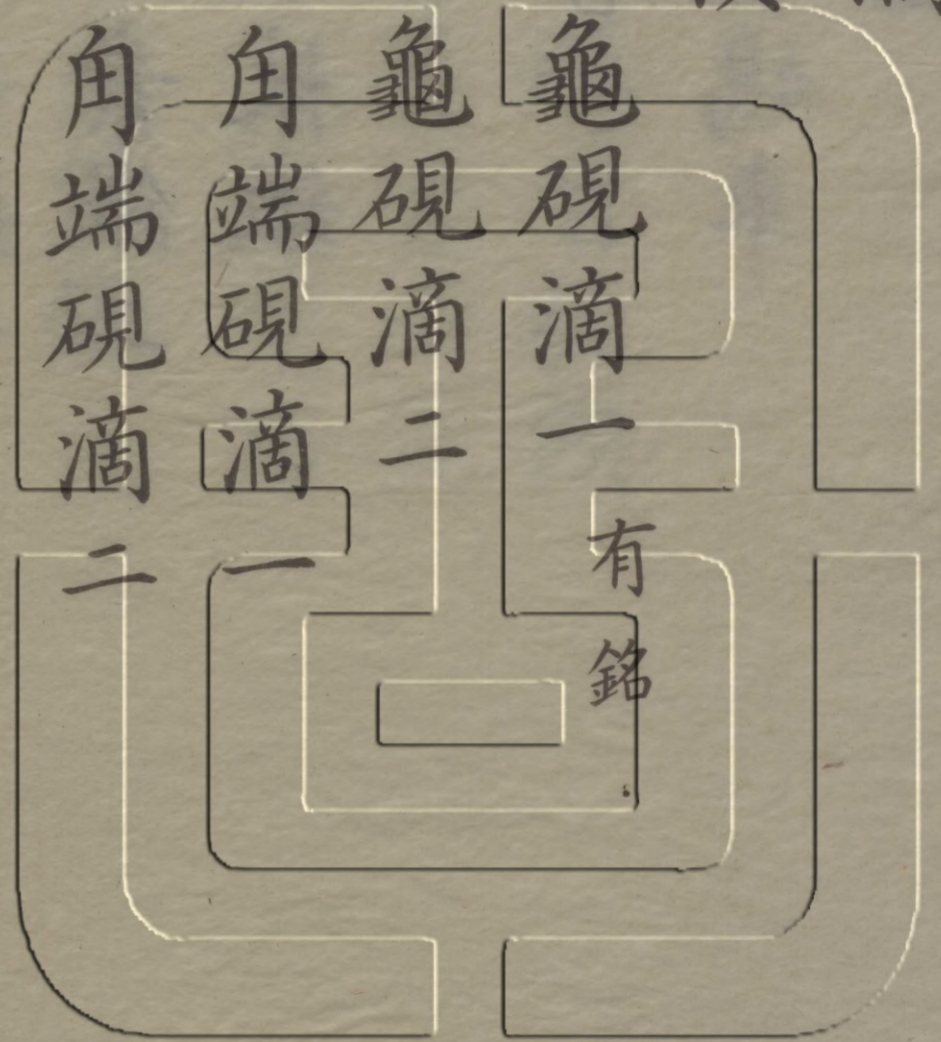 龜硯滴一有銘
龜硯滴二
角端硯滴一
角端硯滴二